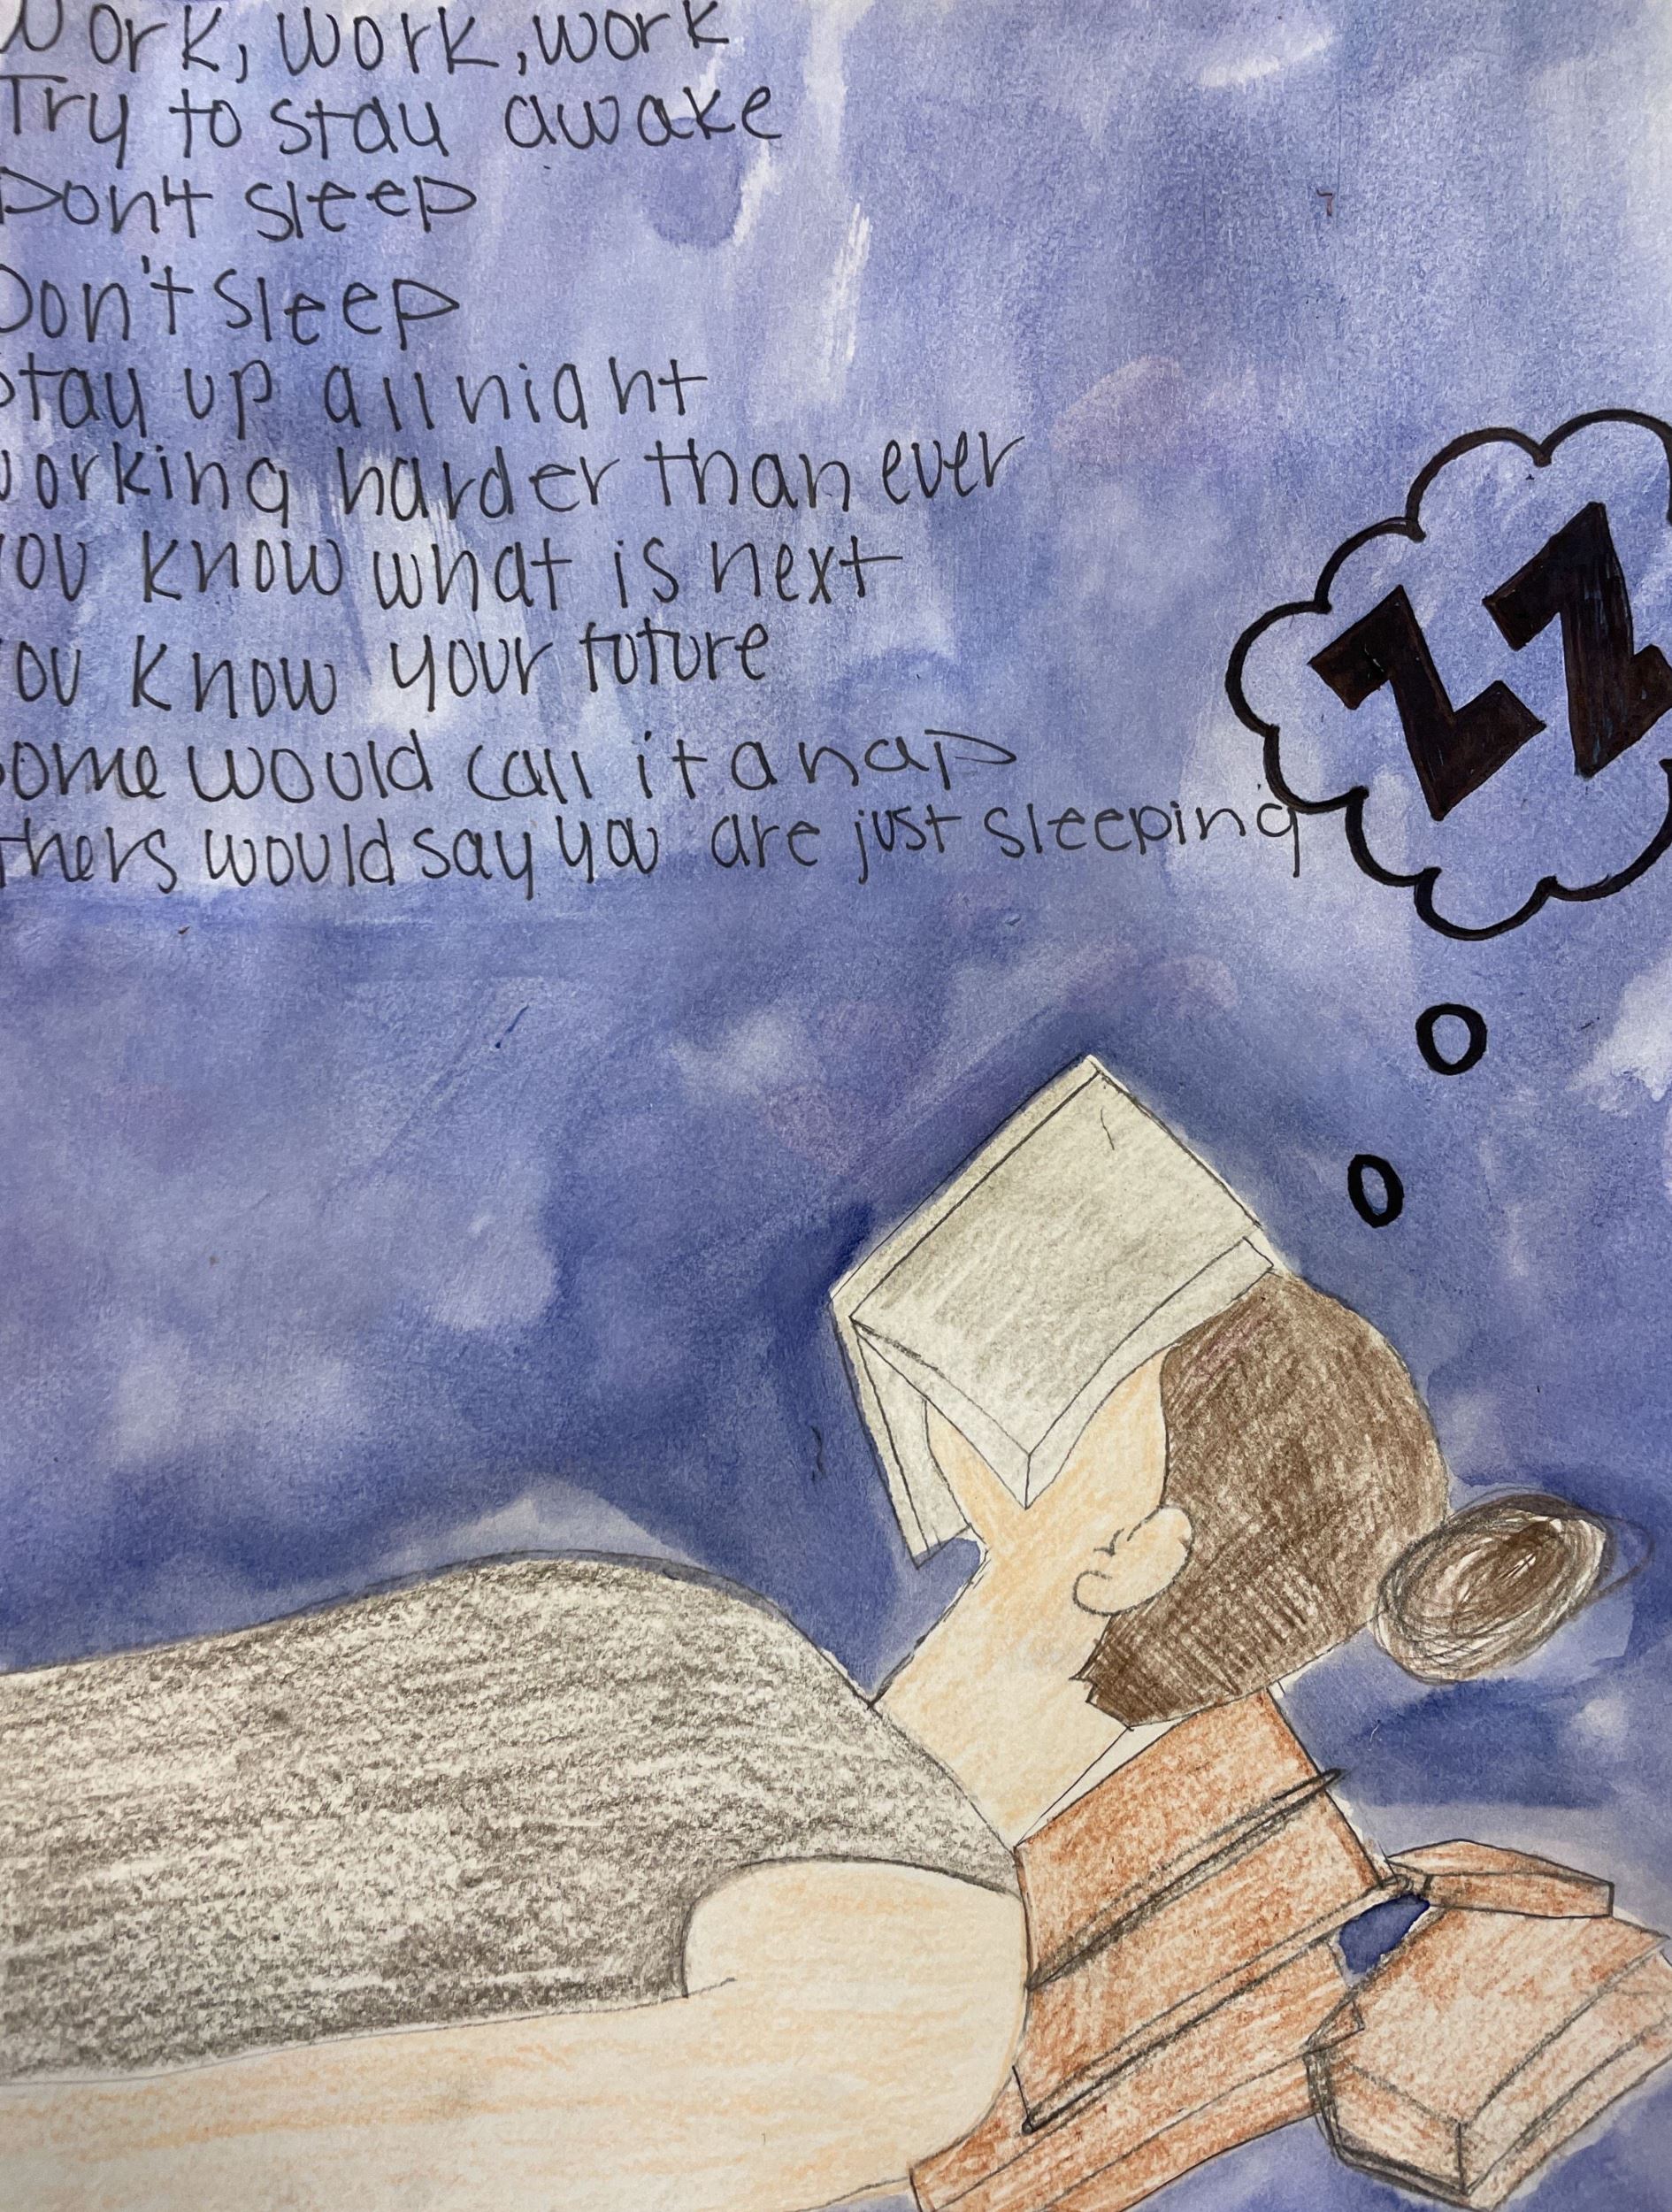 Work, Work, work
Try to stay awake
Don't sleep
Don't sleep
Stay up all night
working harder than ever
You know what is next
You know your future
Some would call it a nap
thers would say you are just sleeping
ZZ